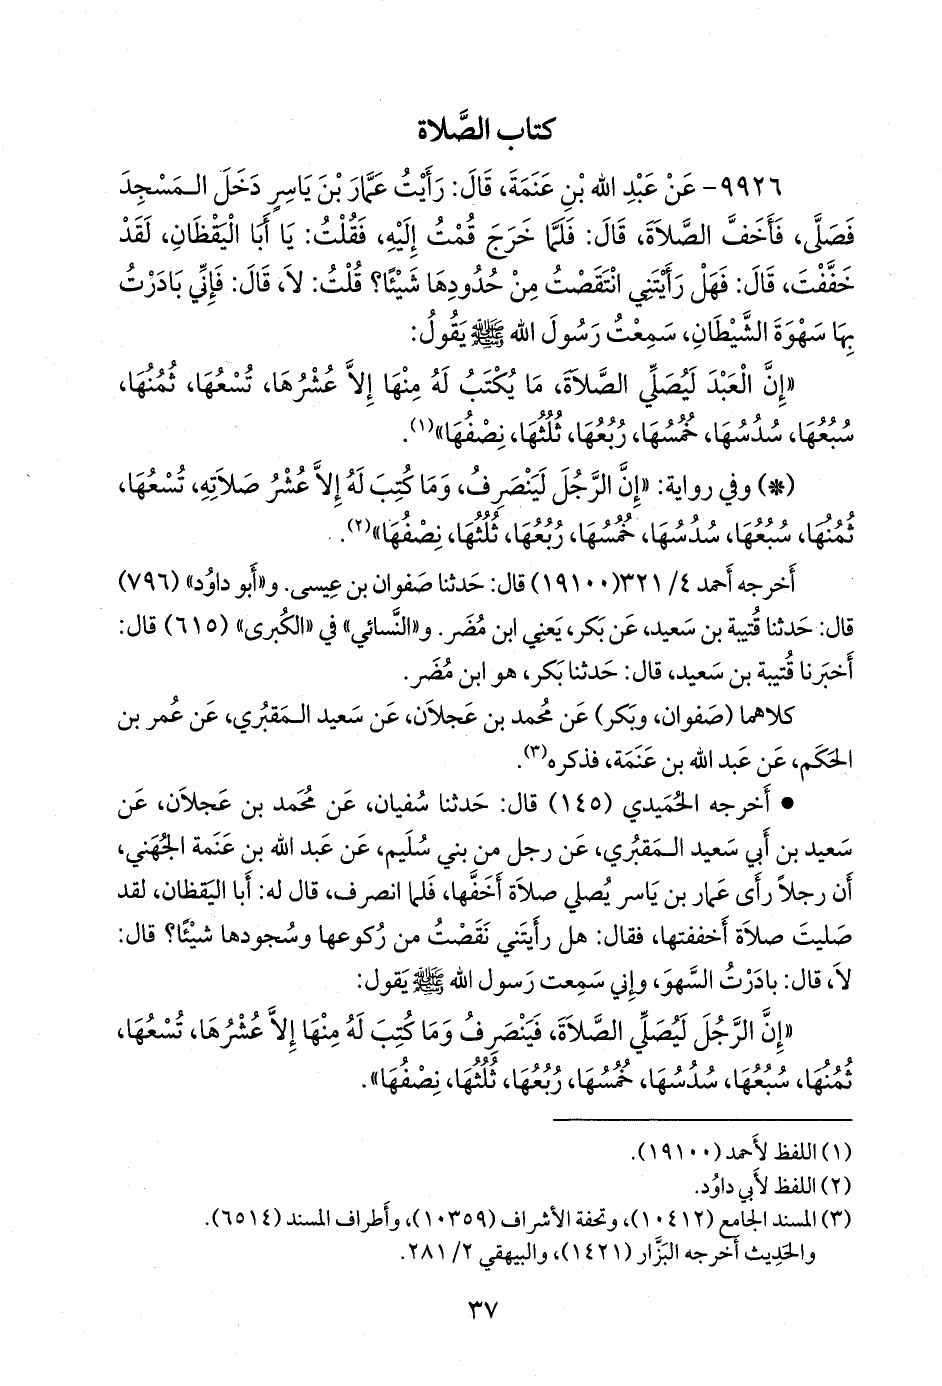 كتاب الصَّلاة
٩٩٢٦- عَنْ عَبْدِ الله بْنِ عَنَمَةَ، قَالَ: رَأَيْتُ عَمَّارَ بْنَ يَاسِرٍ دَخَلَ الـمَسْجِدَ
فَصَلَّى، فَأَخَفَّ الصَّلاَةَ، قَالَ: فَلَمَّا خَرَجَ قُمْتُ إِلَيْهِ، فَقُلْتُ: يَا أَبَا الْيَقْظَانِ، لَقَدْ
خَفَّفْتَ، قَالَ: فَهَلْ رَأَيْتَنِي انْتَقَصْتُ مِنْ حُدُودِهَا شَيْئًا؟ قُلْتُ: لاَ، قَالَ: فَإِنِّي بَادَرْتُ
بِهَا سَهْوَةَ الشَّيْطَانِ، سَمِعْتُ رَسُولَ الله ﷺ يَقُولُ:
«إِنَّ الْعَبْدَ لَيُصَلِّي الصَّلاَةَ، مَا يُكْتَبُ لَهُ مِنْهَا إِلاَّ عُشْرُهَا، تُسْعُهَا، ثُمُنُهَا،
سُبُعُهَا، سُدُسُهَا، خُمُسُهَا، رُبُعُهَا، ثُلُثُهَا، نِصْفُهَا»(١).
(*) وفي رواية: «إِنَّ الرَّجُلَ لَيَنْصَرِفُ، وَمَا كُتِبَ لَهُ إِلاَّ عُشْرُ صَلاَتِهِ، تُسْعُهَا،
ثُمُنُهَا، سُبُعُهَا، سُدُسُهَا، خُمُسُهَا، رُبُعُهَا، ثُلُثُهَا، نِصْفُهَا»(٢).
أَخرجه أَحمد ٤/ ٣٢١(١٩١٠٠) قال: حَدثنا صَفوان بن عِيسى. و«أَبو داوُد» (٧٩٦)
قال: حَدثنا قُتيبة بن سَعيد، عَن بَكر، يَعني ابن مُضَر. و«النَّسائي» في «الكُبرى» (٦١٥) قال:
أَخبَرنا قُتيبة بن سَعيد، قال: حَدثنا بَكر، هو ابن مُضَر.
كلاهما (صَفوان، وبَكر) عَن مُحمد بن عَجلاَن، عَن سَعيد الـمَقبُري، عَن عُمر بن
الحَكَم، عَن عَبد الله بن عَنَمَة، فذكره(٣).
● أَخرجه الحُمَيدي (١٤٥) قال: حَدثنا سُفيان، عَن مُحَمد بن عَجلاَن، عَن
سَعيد بن أَبي سَعيد الـمَقبُري، عَن رجل من بني سُلَيم، عَن عَبد الله بن عَنَمة الجُهَني،
أَن رجلاً رأَى عَمار بن يَاسر يُصلي صلاَة أَخَفَّها، فلما انصرف، قال له: أَبا اليَقظان، لقد
صَليتَ صلاَة أَخففتها، فقال: هل رأَيتَني نَقَصْتُ من رُكوعها وسُجودها شيْئًا؟ قال:
لاَ، قال: بادَرْتُ السَّهوَ، وإِني سَمِعت رَسول الله ﷺ يَقول:
«إِنَّ الرَّجُلَ لَيُصَلِّي الصَّلاَةَ، فَيَنْصَرِفُ وَمَا كُتِبَ لَهُ مِنْهَا إِلاَّ عُشْرُهَا، تُسْعُهَا،
ثُمُنُهَا، سُبُعُهَا، سُدُسُهَا، خُمُسُهَا، رُبُعُهَا، ثُلُثُهَا، نِصْفُهَا».
(١) اللفظ لأَحمد (١٩١٠٠).
(٢) اللفظ لأَبي داوُد.
(٣) المسند الجامع (١٠٤١٢)، وتحفة الأشراف (١٠٣٥٩)، وأَطراف المسند (٦٥١٤).
والحَدِيث أَخرجه البَزَّار (١٤٢١)، والبيهقي ٢/ ٢٨١.
٣٧